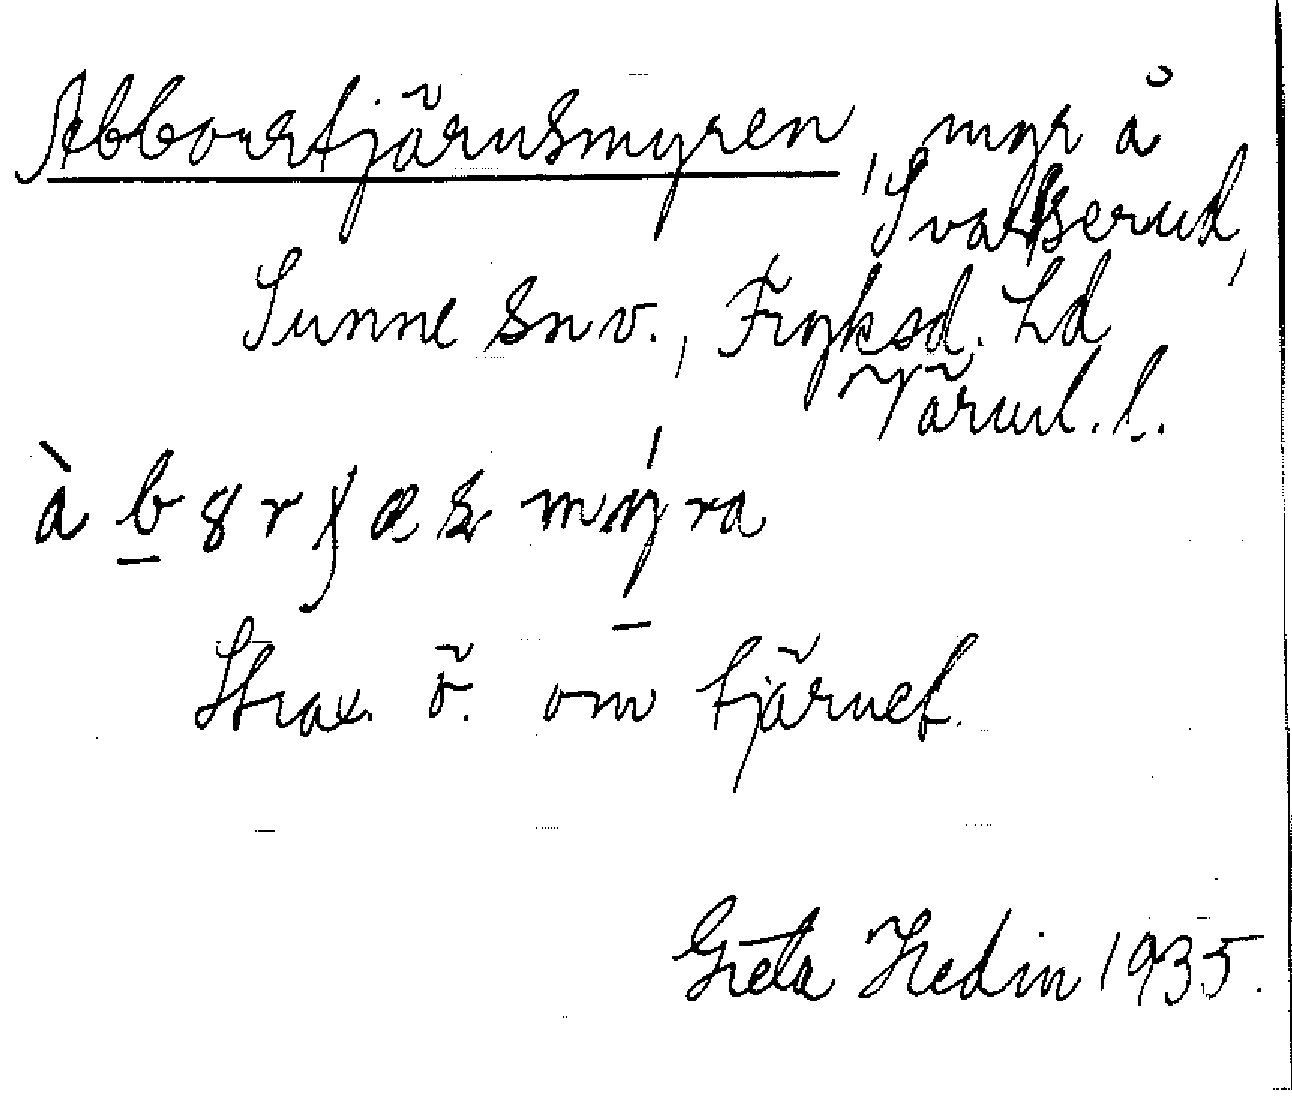 Abborrtjärnsmyren, myr å
Svalserud,
Sunne snv., Fryksd. hd
Värml. l.
Strax ö. om tjärnet.
Greta Hedin 1935.